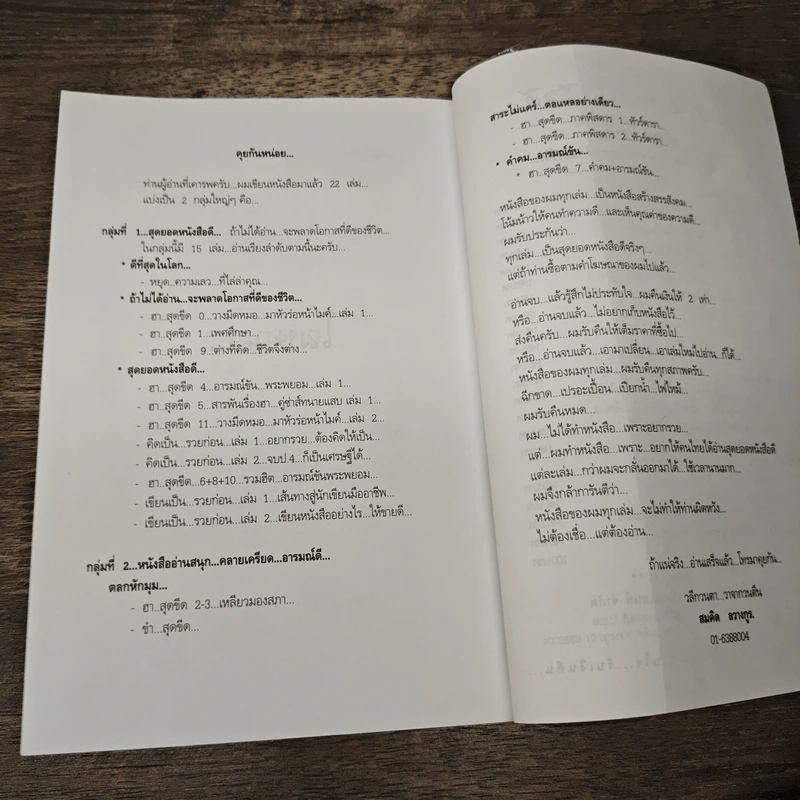 คุยกันหน่อย...
ท่านผู้อ่านที่เคารพครับ...ผมเขียนหนังสือมาแล้ว 22 เล่ม...
แบ่งเป็น 2 กลุ่มใหญ่ๆ คือ...
กลุ่มที่ 1...สุดยอดหนังสือดี... ถ้าไม่ได้อ่าน...จะพลาดโอกาสที่ดีของชีวิต...
ในกลุ่มนี้มี 15 เล่ม...อ่านเรียงลำดับตามนี้นะครับ...
* ดีที่สุดในโลก...
- หยุด..ความเลว...ที่ไล่ล่าคุณ...
* ถ้าไม่ได้อ่าน...จะพลาดโอกาสที่ดีของชีวิต...
- ฮา..สุดขีด 0...วางมีดหมอ...มาหัวร่อหน้าไมค์...เล่ม 1...
- ฮา..สุดขีด 1...เพศศึกษา...
- ฮา..สุดขีด 9...ต่างที่คิด...ชีวิตจึงต่าง...
* สุดยอดหนังสือดี...
- ฮา..สุดขีด 4...อารมณ์ขัน...พระพยอม...เล่ม 1...
- ฮา..สุดขีด 5...สารพันเรื่องฮา...คู่ซ่าส์ทนายแสบ เล่ม 1...
- ฮา..สุดขีด 11...วางมีดหมอ...มาหัวร่อหน้าไมค์...เล่ม 2...
- คิดเป็น...รวยก่อน...เล่ม 1...อยากรวย...ต้องคิดให้เป็น...
- คิดเป็น...รวยก่อน...เล่ม 2...จบป.4...ก็เป็นเศรษฐีได้...
- ฮา..สุดขีด...6+8+10...รวมฮิต...อารมณ์ขันพระพยอม...
- เขียนเป็น...รวยก่อน...เล่ม 1...เส้นทางสู่นักเขียนมืออาชีพ...
- เขียนเป็น...รวยก่อน...เล่ม 2...เขียนหนังสืออย่างไร...ให้ขายดี...
กลุ่มที่ 2...หนังสืออ่านสนุก...คลายเครียด...อารมณ์ดี...
ตลกหักมุม...
- ฮา..สุดขีด 2-3...เหลียวมองสภา...
- ขำ...สุดขีด...
สาระไม่แคร์...ตอแหลอย่างเดียว...
- ฮา..สุดขีด...ภาคพิสดาร 1...ทัวร์ดารา...
- ฮา..สุดขีด...ภาคพิสดาร 2...ทัวร์ดารา...
* คำคม...อารมณ์ขัน...
* ฮา..สุดขีด 7...คำคม+อารมณ์ขัน...
หนังสือของผมทุกเล่ม...เป็นหนังสือสร้างสรรสังคม...
โน้มน้าวให้คนทำความดี...และเห็นคุณค่าของความดี...
ผมรับประกันว่า...
ทุกเล่ม...เป็นสุดยอดหนังสือดีจริงๆ...
แต่ถ้าท่านซื้อตามคำโฆษณาของผมไปแล้ว...
อ่านจบ...แล้วรู้สึกไม่ประทับใจ...ผมคืนเงินให้ 2 เท่า...
หรือ...อ่านจบแล้ว...ไม่อยากเก็บหนังสือไว้...
ส่งคืนครับ...ผมรับคืนให้เต็มราคาที่ซื้อไป...
หรือ...อ่านจบแล้ว...เอามาเปลี่ยน...เอาเล่มใหม่ไปอ่าน...ก็ได้...
หนังสือของผมทุกเล่ม...ผมรับคืนทุกสภาพครับ...
ฉีกขาด...เปรอะเปื้อน...เปียกน้ำ...ไฟไหม้...
ผมรับคืนหมด...
ผม...ไม่ได้ทำหนังสือ...เพราะอยากรวย...
แต่...ผมทำหนังสือ...เพราะ...อยากให้คนไทยได้อ่านสุดยอดหนังสือดี
แต่ละเล่ม...กว่าผมจะกลั่นออกมาได้...ใช้เวลานานมาก...
ผมจึงกล้าการันตีว่า...
หนังสือของผมทุกเล่ม...จะไม่ทำให้ท่านผิดหวัง...
ไม่ต้องเชื่อ...แต่ต้องอ่าน...
ถ้าแน่จริง...อ่านเสร็จแล้ว...โทรมาคุยกัน...
วลีกวนตา...วาจากวนตีน
สมคิด ลวางกูร.
01-6388004